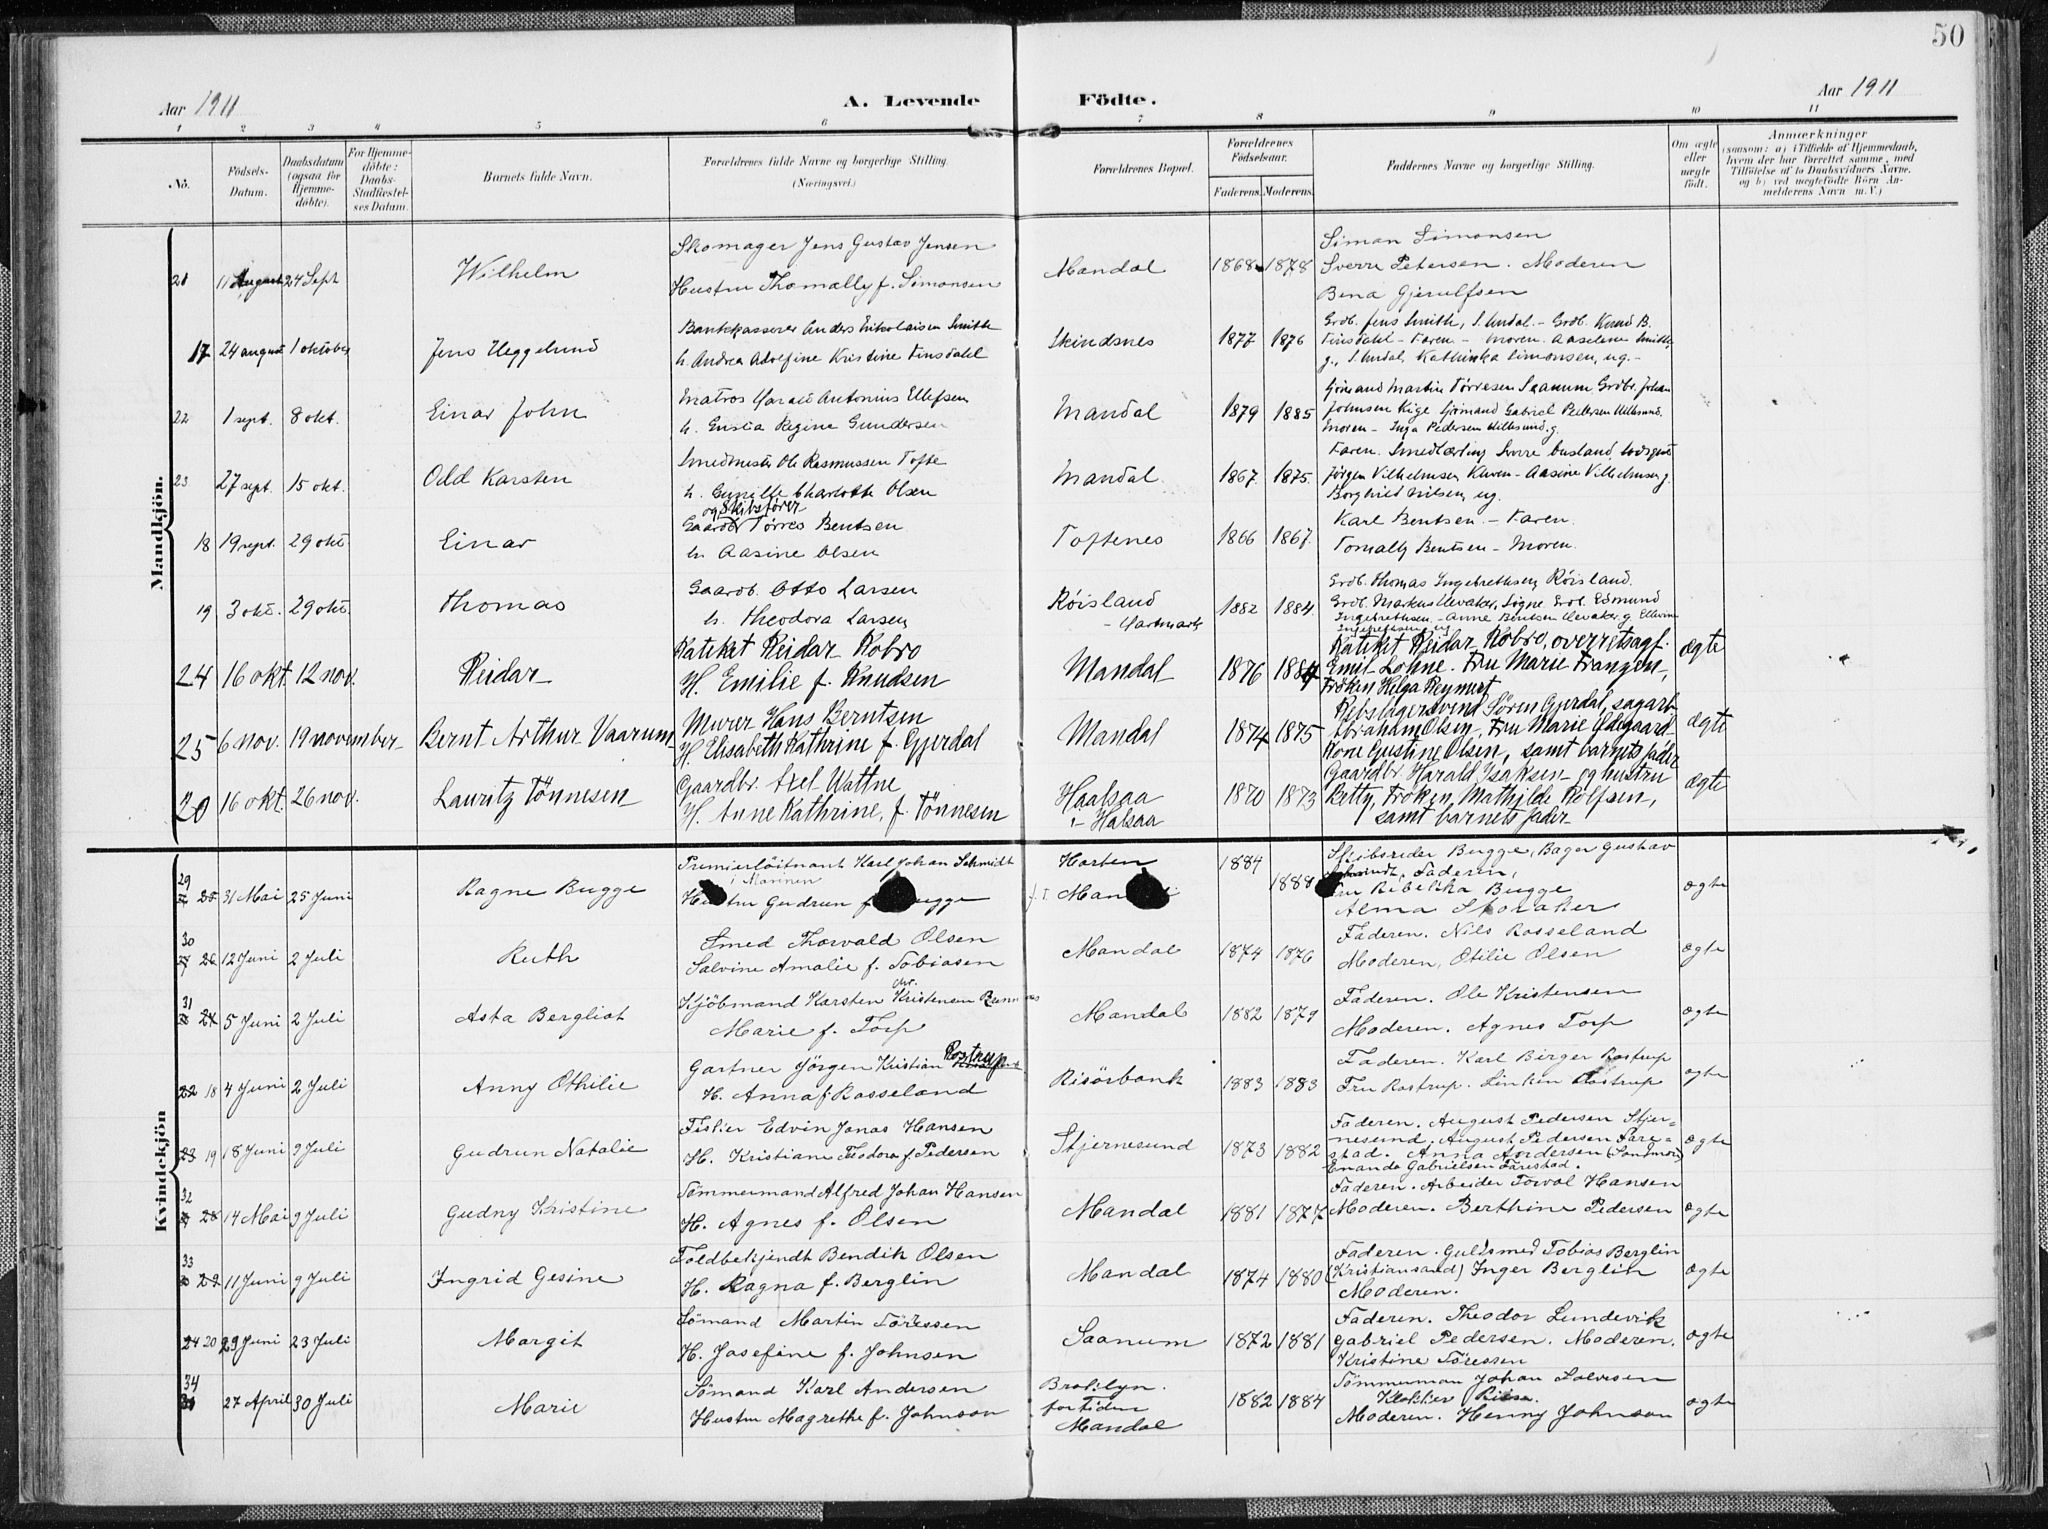 50
Aar 1911
A. Levende
Födte.
Aar 1911
1 2 3 4 5 6 7 8 9 10 11
No.
Födsels-Datum.
Daabsdatum (ogsaa for Hjemme-döbte).
For Hjemme-döbte: Daabs-Stadfæstel-ses Datum.
Barnets fulde Navn.
Forældrenes fulde Navne og borgerlige Stilling.
(Næringsvei.)
Forældrenes Bopæl.
Forældrenes Födselsaar.
Faderens. Moderens.
Faddernes Navne og borgerlige Stilling.
Om ægte eller uægte födt.
Anmærkninger
(saasom: a) i Tilfælde af Hjemmedaab, hvem der har forrettet samme, med Tilföielse af to Daabsvidners Navne, og b) ved uægtefödte Börn An-melderens Navn m. V.)
Mandkjön.
21 11 August 24 Sept Wilhelm
Skomager Jens Gustav Jensen
Hustru Thomally f. Simonsen
Mandal 1868 1878
Simon Simonsen
Sverre Petersen. Moderen
Bena Gjerulfsen
17 24 august 1 oktober Jens Ueggelund
Bankkasserer Anders Nikolaisen Smith
h. Andrea Adolfine Kristine Finsdahl
Skindsnes 1877 1876
Grdb. Jens Smith, S. Undal. - Grdb. Knud B.
Finsdahl - Faren - Moren. Aaselene Smith,
g., S. Undal, Kathinka Simonsen, ug. -
22 1 sept. 8 okt. Einar John
Matros Harald Antonius Ellefsen
h. Emilia Regine Gundersen
Mandal 1879 1885
Sjömand Martin Tørresen Saanum Grdbr. Johan
Johnsen Kige Sjömand Gabriel Pedersen
Moren - Inga Pedersen g.
23 27 sept. 15 okt. Odd Karsten
Smedmester Ole Rasmussen Tofte
h. Gunille Charlotte Olsen
Mandal. 1867. 1875.
Faren. Smedlærling Sverre Busland,
Jørgen Vilhelmsen Kleven - Aasine Vilhelmsen g.
Borghild Nilsen, ug.
18 19 sept. 29 okt. Einar
og Skibsfører
Gaardb. Tørres Bentsen
h. Aasine Olsen
Toftenes 1866 1867.
Karl Bentsen. - Faren.
Tomally Bentsen - Moren.
19 3 okt. 29 okt. Thomas
Gaardb. Otto Larsen
h. Theodora Larsen
Røisland
- Hartmark
1882 1884.
Grdb. Thomas Ingebrethsen Røisland.
Grdb. Markus Uevaker, Søgne. Grdb. Edmund
Ingebrethsen - Anne Bentsen Uevaker g. Ellevine
Ingebrethsen ug.
24 16 okt. 12 nov. Reidar
Kateket Reidar Kobro
H. Emilie f. Knudsen
Mandal 1876 1884
Kateket Reidar Kobro, overretssagf.
Emil Lohne. Fru Marie Frangen,
Frøken Helga Reymert
ægte
25 6 nov. 19 november Bernt Arthur Vaarum
Murer Hans Berntsen
H. Elisabeth Kathrine f. Gjerdal
Mandal 1874 1875
Rebslagersvend Sören Gjerdal, sagarb.
Abraham Olsen, Fru Marie Ødegaard
Kone Gustine Olsen, samt barnets fader
ægte
20 16 okt. 26 nov. Lauritz Tönnesen
Gaardbr. Axel Wattne
H. Anne Kathrine, f. Tönnesen
Haalsaa
i - Halsaa
1870 1873
Gaardbr. Harald Isaksen og hustru
Betty, Frøken Mathilde Rolfsen,
samt barnets fader
ægte
Kvindekjön
29
25 31 Mai 25 Juni Ragne Bugge
Premierlöitnant Karl Johan Schmidt
i Marinen
Hustru Gudrun f. Bugge
Horten
f. T. Mandal
1884 1888
Skibsreder Bugge, Bager Gustav
Schmidt, Faderen,
Fru Rebekka Bugge
Alma Storaker
ægte
30
26 12 Juni 2 Juli Ruth
Smed Thorvald Olsen
Salvine Amalie f. Tobiasen
Mandal 1874 1876
Faderen. Nils Rosseland
Moderen, Otilie Olsen
ægte
31
27 5 Juni 2 Juli Asta Bergliot
Chr.
Kjöbmand Karsten Kristensen Brennaas
Marie f. Torp
Mandal 1882 1879
Faderen. Ole Kristensen
Moderen. Agnes Torp
ægte
22 18 4 Juni 2 Juli Anny Othilie
Gartner Jörgen Kristian Rostrup
H. Anna f. Rosseland
Risörbank 1883 1883
Faderen. Karl Birger Rostrup
Fru Rostrup. Linken Rostrup
ægte
23 19 18 Juni 9 Juli Gudrun Natalie
Fisker Edvin Jonas Hansen
H. Kristiane Teodora f. Pedersen
Stjernesund 1873 1882
Faderen. August Pedersen Stjer-
nesund, August Pedersen Fare-
stad. Anna Andersen (Sandmo)
Enanda Gabrielsen Farestad.
ægte
32
28 14 Mai 9 Juli Gudny Kristine
Tömmermand Alfred Johan Hansen
H. Agnes f. Olsen
Mandal 1881 1877
Faderen. Arbeider Torval Hansen
Moderen. Berthine Pedersen
ægte
33
29 11 Juni 9 Juli Ingrid Gesine
Toldbetjendt Bendik Olsen
H. Ragna f. Berglin
Mandal 1874 1880
Faderen. Guldsmed Tobias Berglin
(Kristiansand) Inger Berglin
Moderen.
ægte
24 20 29 Juni 23 Juli Margit
Sömand Martin Töressen
H. Josefine f. Johnsen
Saanum 1872 1881
Faderen. Theodor Lundevik
Gabriel Pedersen. Moderen.
Kristine Töressen
ægte
34
30 27 April 30 Juli Marie
Sömand Karl Andersen
Hustru Magrethe f. Johnson
Broklyn.
for Tiden
Mandal
1882 1884
Tömmerman Johan Salvesen
Klokker Riise.
Moderen. Henny Johnson
ægte